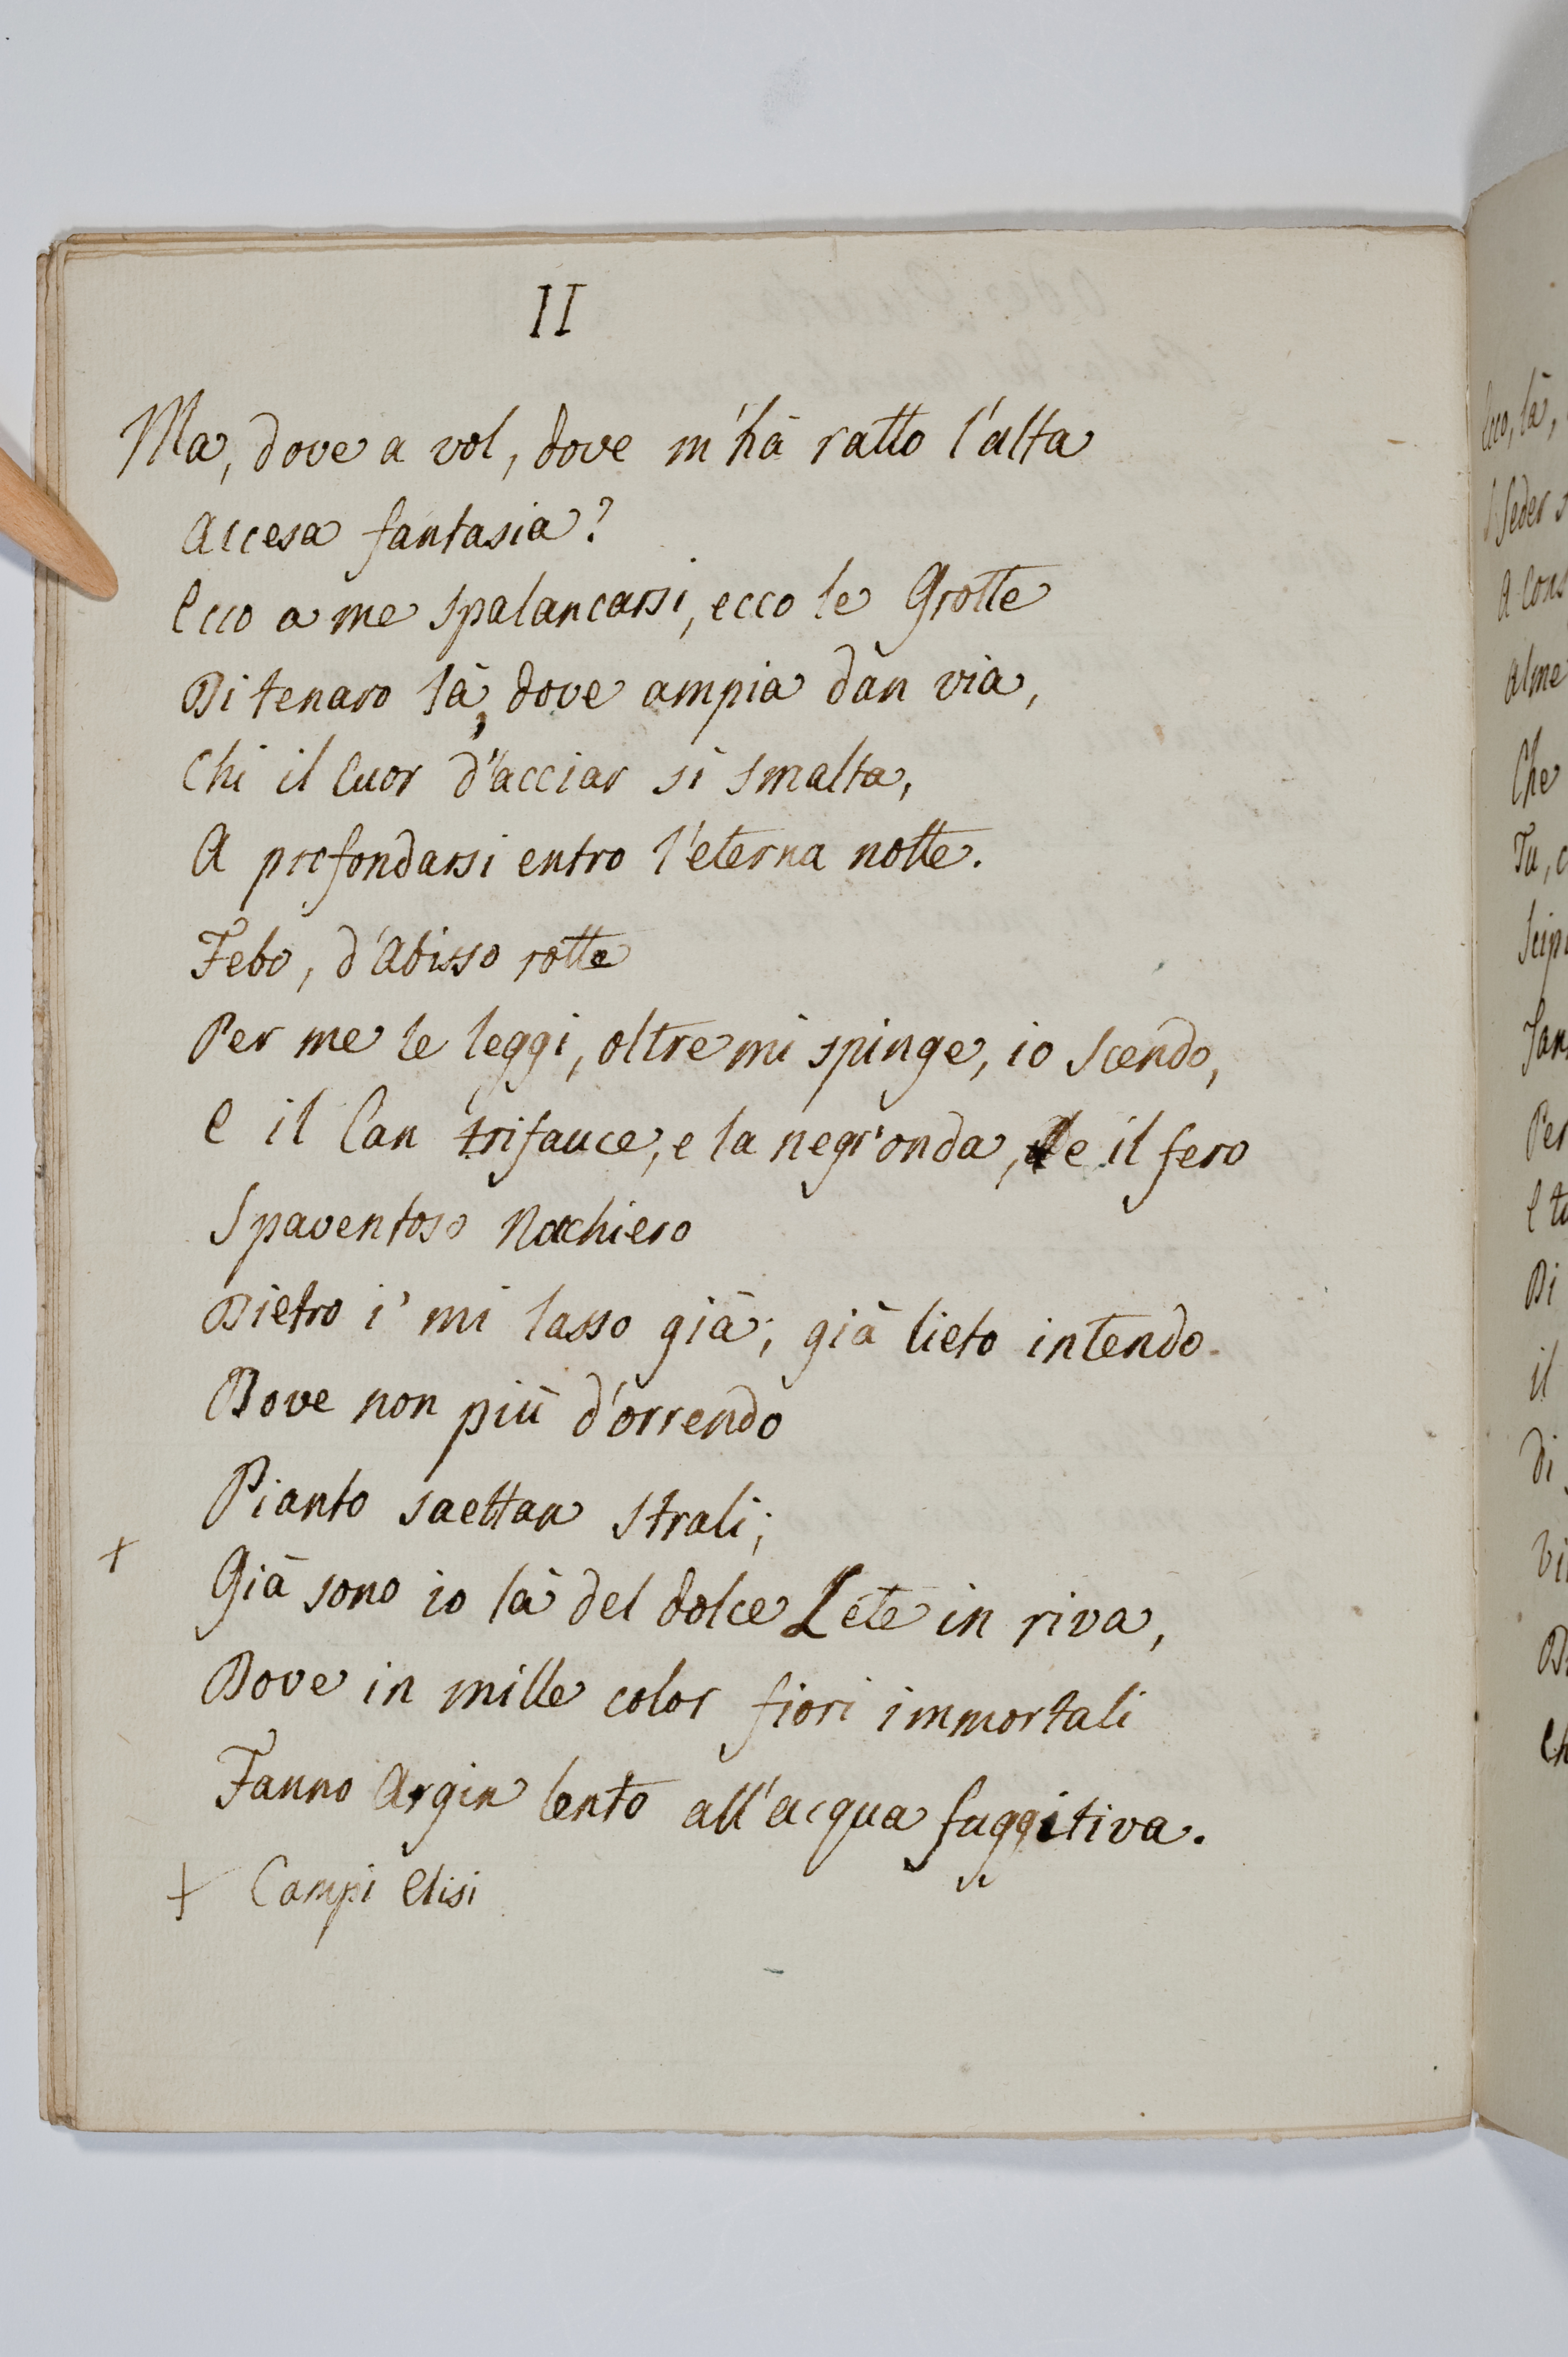 II
Ma, dove a vol, dove m'hà ratto l'alta
Accesa fantasia?
Ecco a me spalancarsi, ecco le Grotte
Di tenaro là, dove ampia dàn via,
Chi il Cuor d'acciar si smalta,
A profondarsi entro l'eterna notte.
Febo, d'Abisso rotte
Per me le leggi, oltre mi spinge, io scendo,
E il Can trifauce, e la negr'onda, e il fero
Spaventoso Nocchiero
Dietro i' mi lasso già; già lieto intendo.
Dove non più d'orrendo
Pianto saettan strali;
+ Già sono io là del dolce Lete in riva,
Dove in mille color fiori immortali
Fanno Argin lento all'acqua fuggitiva.
+ Campi Elisi
Ecco, là,
Seder
A
Alme
Che
Tu,
Per
E
Di
il
di